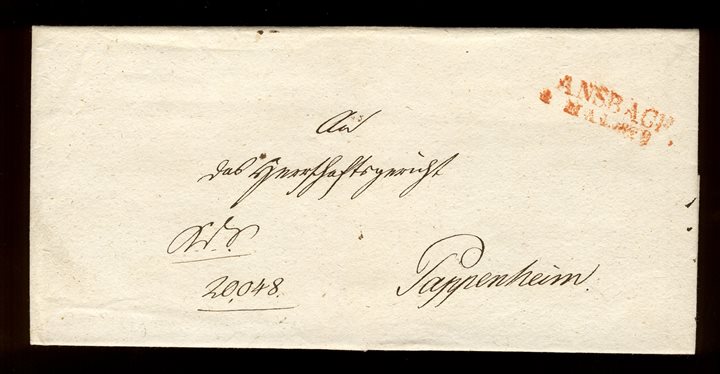 ANSBACH.
MAI
An
das Herrschaftsgericht
R. d. S.
20,048.
Pappenheim.